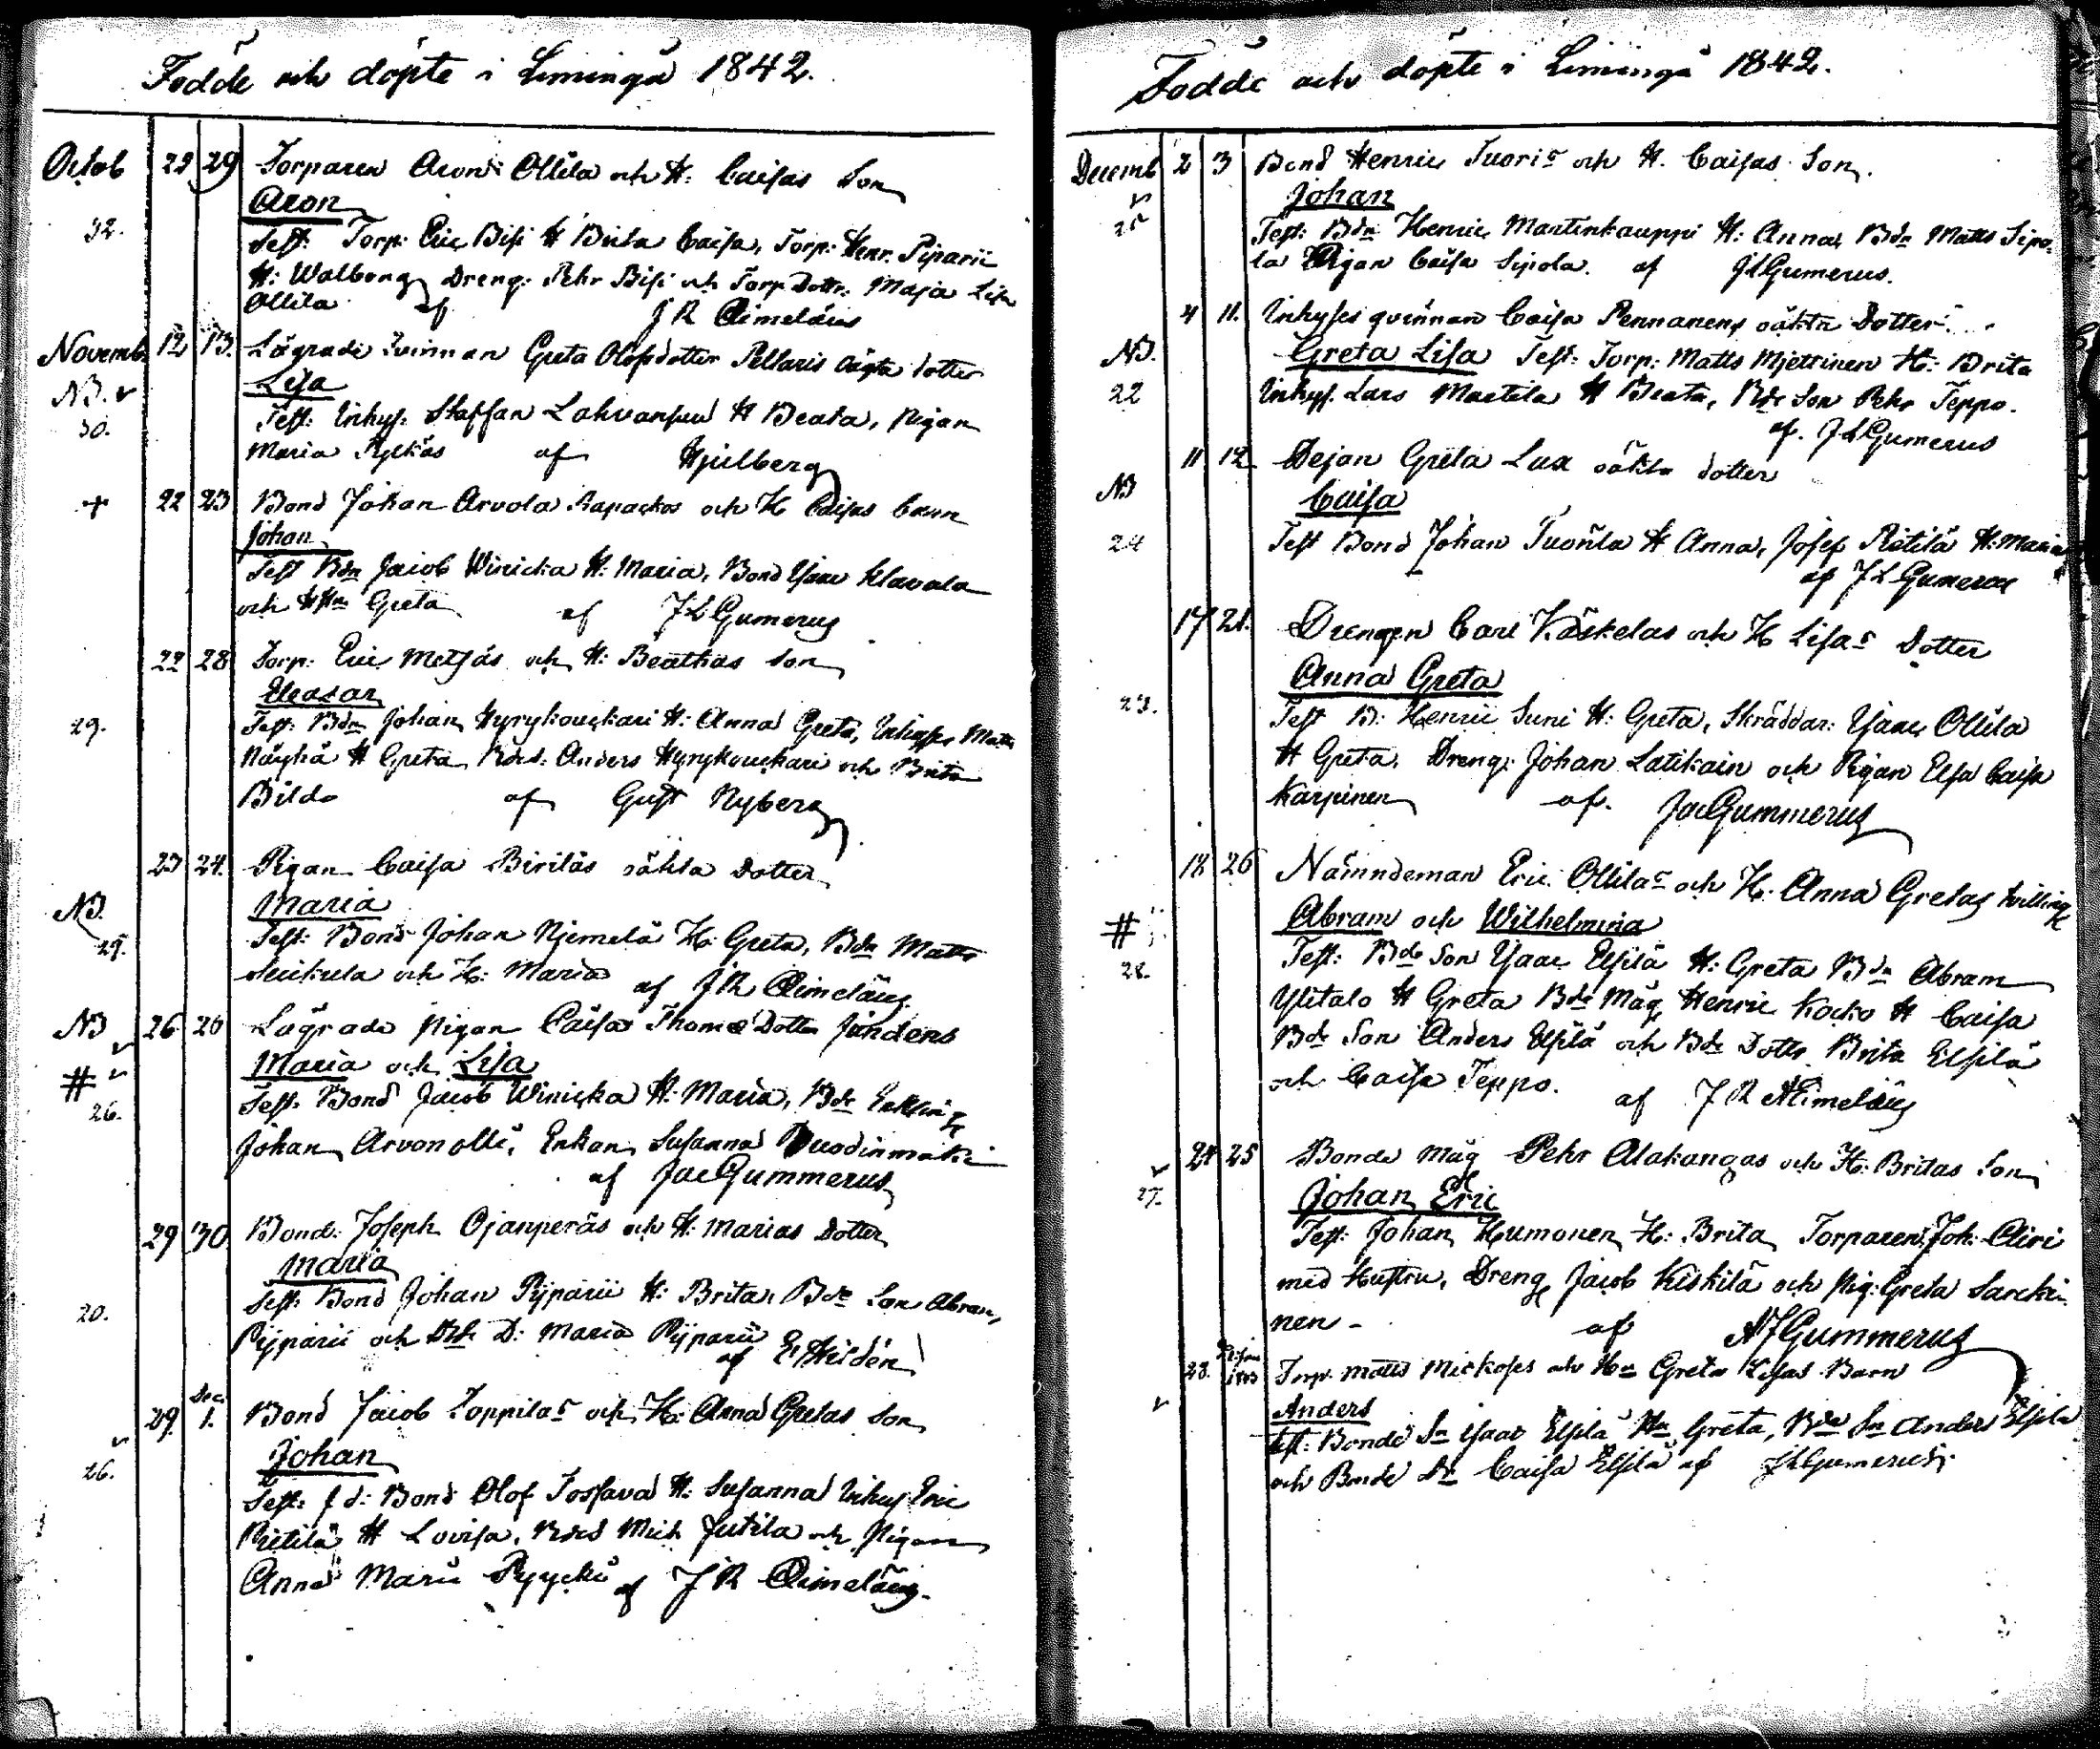 Födde och döpte i Limingå 1842.
Octob 22 29 Torparen Aron Ollila och H: Caisas Son
Aron
32. Test: Torp: Eric Bisi H Brita Caisa, Torp: Henr. Piparii
H: Walborg, Dreng: Pehr Bisi och Torp Dottr: Maja Lisa
Ollila af J R Aimelæus
Novemb 12 13. Lägrade Qvinnan Greta Olofsdotter Pellaris oägta dotter
NB. Lisa
30. Test: Inhys: Staffan Lahvanpera H Beata, Pigan
Maria af Hjulberg
+ 22 23 Bond Johan Arvola och H Caisas barn
Johan
Test Bdn Jacob Winicka H: Maria, Bond Isaac Klavala
och Greta af J L Gumerus
22 28 Torp: Eric Metsäs och H: Beathas Son
Eleasar
29. Test: Bdn Johan Hyrykouckari H: Anna Greta, Inhyses Matts
Näykä H Greta, Bdes: Anders Hyrykouckari och Brita
Bildo af Gust Nyberg
23 24. Pigan Caisa Biriläs oäkta Dotter
NB. Maria
29. Test: Bond Johan Niemelä H: Greta, Bdn Matts
och H: Maria af J R Aimelæus
NB 26 26 Lägrade Pigan Caisa Thomæ Dotter
# Maria och Lisa
26. Test: Bond Jacob Winicka H: Maria, Bde
Johan Arvonolli, Enkan Susanna
af Jac Gummerus
29 30 Bond: Joseph Ojanperäs och H: Marias Dotter
Maria
20. Test: Bond Johan Pijparii H: Brita, Bde Son Abram
Pijparii och Bde D: Maria Pijparii
af E. Heidén
29 Dec. 1. Bond Jacob Toppilas och H: Anna Gretas Son
Johan
26. Test: f d: Bond Olof Tossava H: Susanna Inhys Eric
Pietilä H Lovisa, Bdes Mich Jutila och Pigan
Anna Maria af J R Aimelæus.
Födde och döpte i Limingå 1842.
Decemb 2 3 Bond Henric Tuoris och H. Caisas Son.
Johan
25 Test: Bdn Henric Martinkauppi H: Anna, Bdn Matts Sipo-
la Pigan Caisa Sipola. af J L Gumerus.
4 11. Inhyses qvinnan Caisa Pennanens oäkta Dotter
NB. Greta Lisa Test: Torp: Matts Mjettinen H: Brita
22 Inhys. Lars Martila H Beata, Bde Son Pehr Teppo.
af. J L Gumerus
11 12 Dejan Greta Lax oäkta dotter
NB Caisa
24 Test Bond Johan Tuorila H Anna, Josef Pietilä H: Maria
af J L Gumerus
17 21. Drengen Carl Käskelas och H Lisas Dotter
Anna Greta
23. Test B: Henric Suni H: Greta, Skräddar: Isaac Ollila
H Greta, Dreng: Johan Latikain och Pigan Elsa Caisa
Karpinen af. Jac Gummerus
18 26 Nämndeman Eric Ollilas och H: Anna Gretas tvilling
# Abram och Wilhelmina
28. Test: Bde Son Isaac Elsilä H: Greta Bdn Abram
Ylitalo H Greta Bde Måg Henric Kocko H Caisa
Bde Son Anders Elsilä och Bde Dottr Brita Elsilä
och Caisa Teppo. af J R Aimelæus
24 25 Bonde måg Pehr Alakangas och H: Britas Son
27. Johan Eric
Test: Johan Humonen H: Brita Torparen Joh: Airi
med Hustru, Dreng Jacob Kiskilä och Pig: Greta Sarcki-
nen - af A F Gummerus
28. 1843 Torp: Matts Mickoses och Hu Greta Lisas Barn
Anders
Test: Bonde Sn Isaac Elsilä Hu Greta, Bde Sn Anders Elsilä
och Bonde Dr Caisa Elsilä af J L Gumerus.